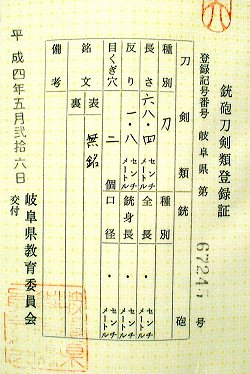 銃砲刀剣類登録証
登録記号番号 岐阜県 第 67245 号
刀剣類 銃砲
種別 刀 種別
長さ 六八・四 センチメートル 全長 ・ センチメートル
反り 一・八 センチメートル 銃身長 ・ センチメートル
目くぎ穴 二個 口径 ・ センチメートル
銘文 表 無銘
裏
備考
平成四年五月弐拾六日
交付
岐阜県教育委員会